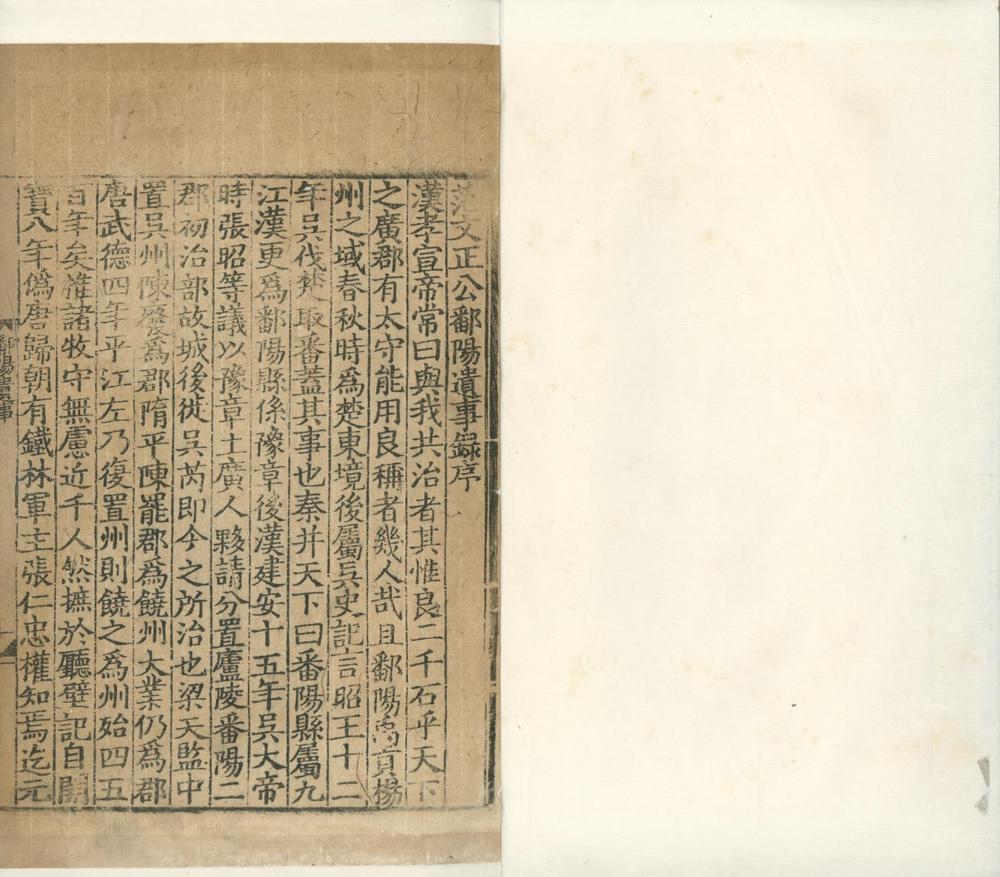 范文正公鄱陽遺事錄序
漢孝宣帝常曰與我共治者其惟良二千石乎天下
之廣郡有太守能用良稱者幾人哉且鄱陽禹貢楊
州之域春秋時爲楚東境後屬吳史記言昭王十二
年吳伐楚取番蓋其事也秦并天下曰番陽縣屬九
江漢更爲鄱陽縣係豫章後漢建安十五年吳大帝
時張昭等議以豫章土廣人夥請分置廬陵番陽二
郡初治部故城後徙吳芮即今之所治也梁天監中
置吳州陳廢爲郡隋平陳罷郡爲饒州大業仍爲郡
唐武德四年平江左乃復置州則饒之爲州始四五
百年矣惟諸牧守無慮近千人然摭於廳壁記自開
寶八年僞唐歸朝有鐵林軍主張仁忠權知焉迄元
鄱陽遺事